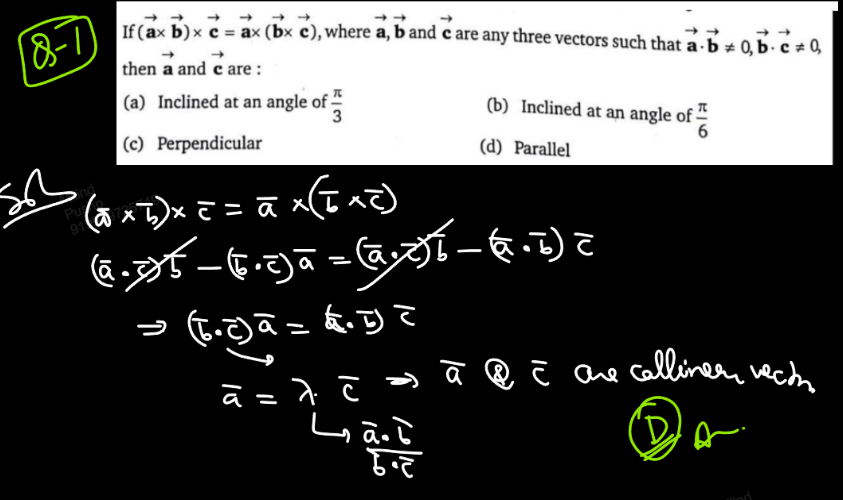 Q-1
If (a⃗ × b⃗) × c⃗ = a⃗ × (b⃗ × c⃗), where a⃗, b⃗ and c⃗ are any three vectors such that a⃗ · b⃗ ≠ 0, b⃗ · c⃗ ≠ 0,
then a⃗ and c⃗ are :
(a) Inclined at an angle of π/3 (b) Inclined at an angle of π/6
(c) Perpendicular (d) Parallel
Sol
(a̅ × b̅) × c̅ = a̅ × (b̅ × c̅)
(a̅ . c̅) b̅ – (b̅ . c̅) a̅ = (a̅ . c̅) b̅ – (a̅ . b̅) c̅
⇒ (b̅ . c̅) a̅ = (a̅ . b̅) c̅
a̅ = λ . c̅ ⇒ a̅ & c̅ are collinear vectors
a̅ . b̅ / b̅ . c̅
D